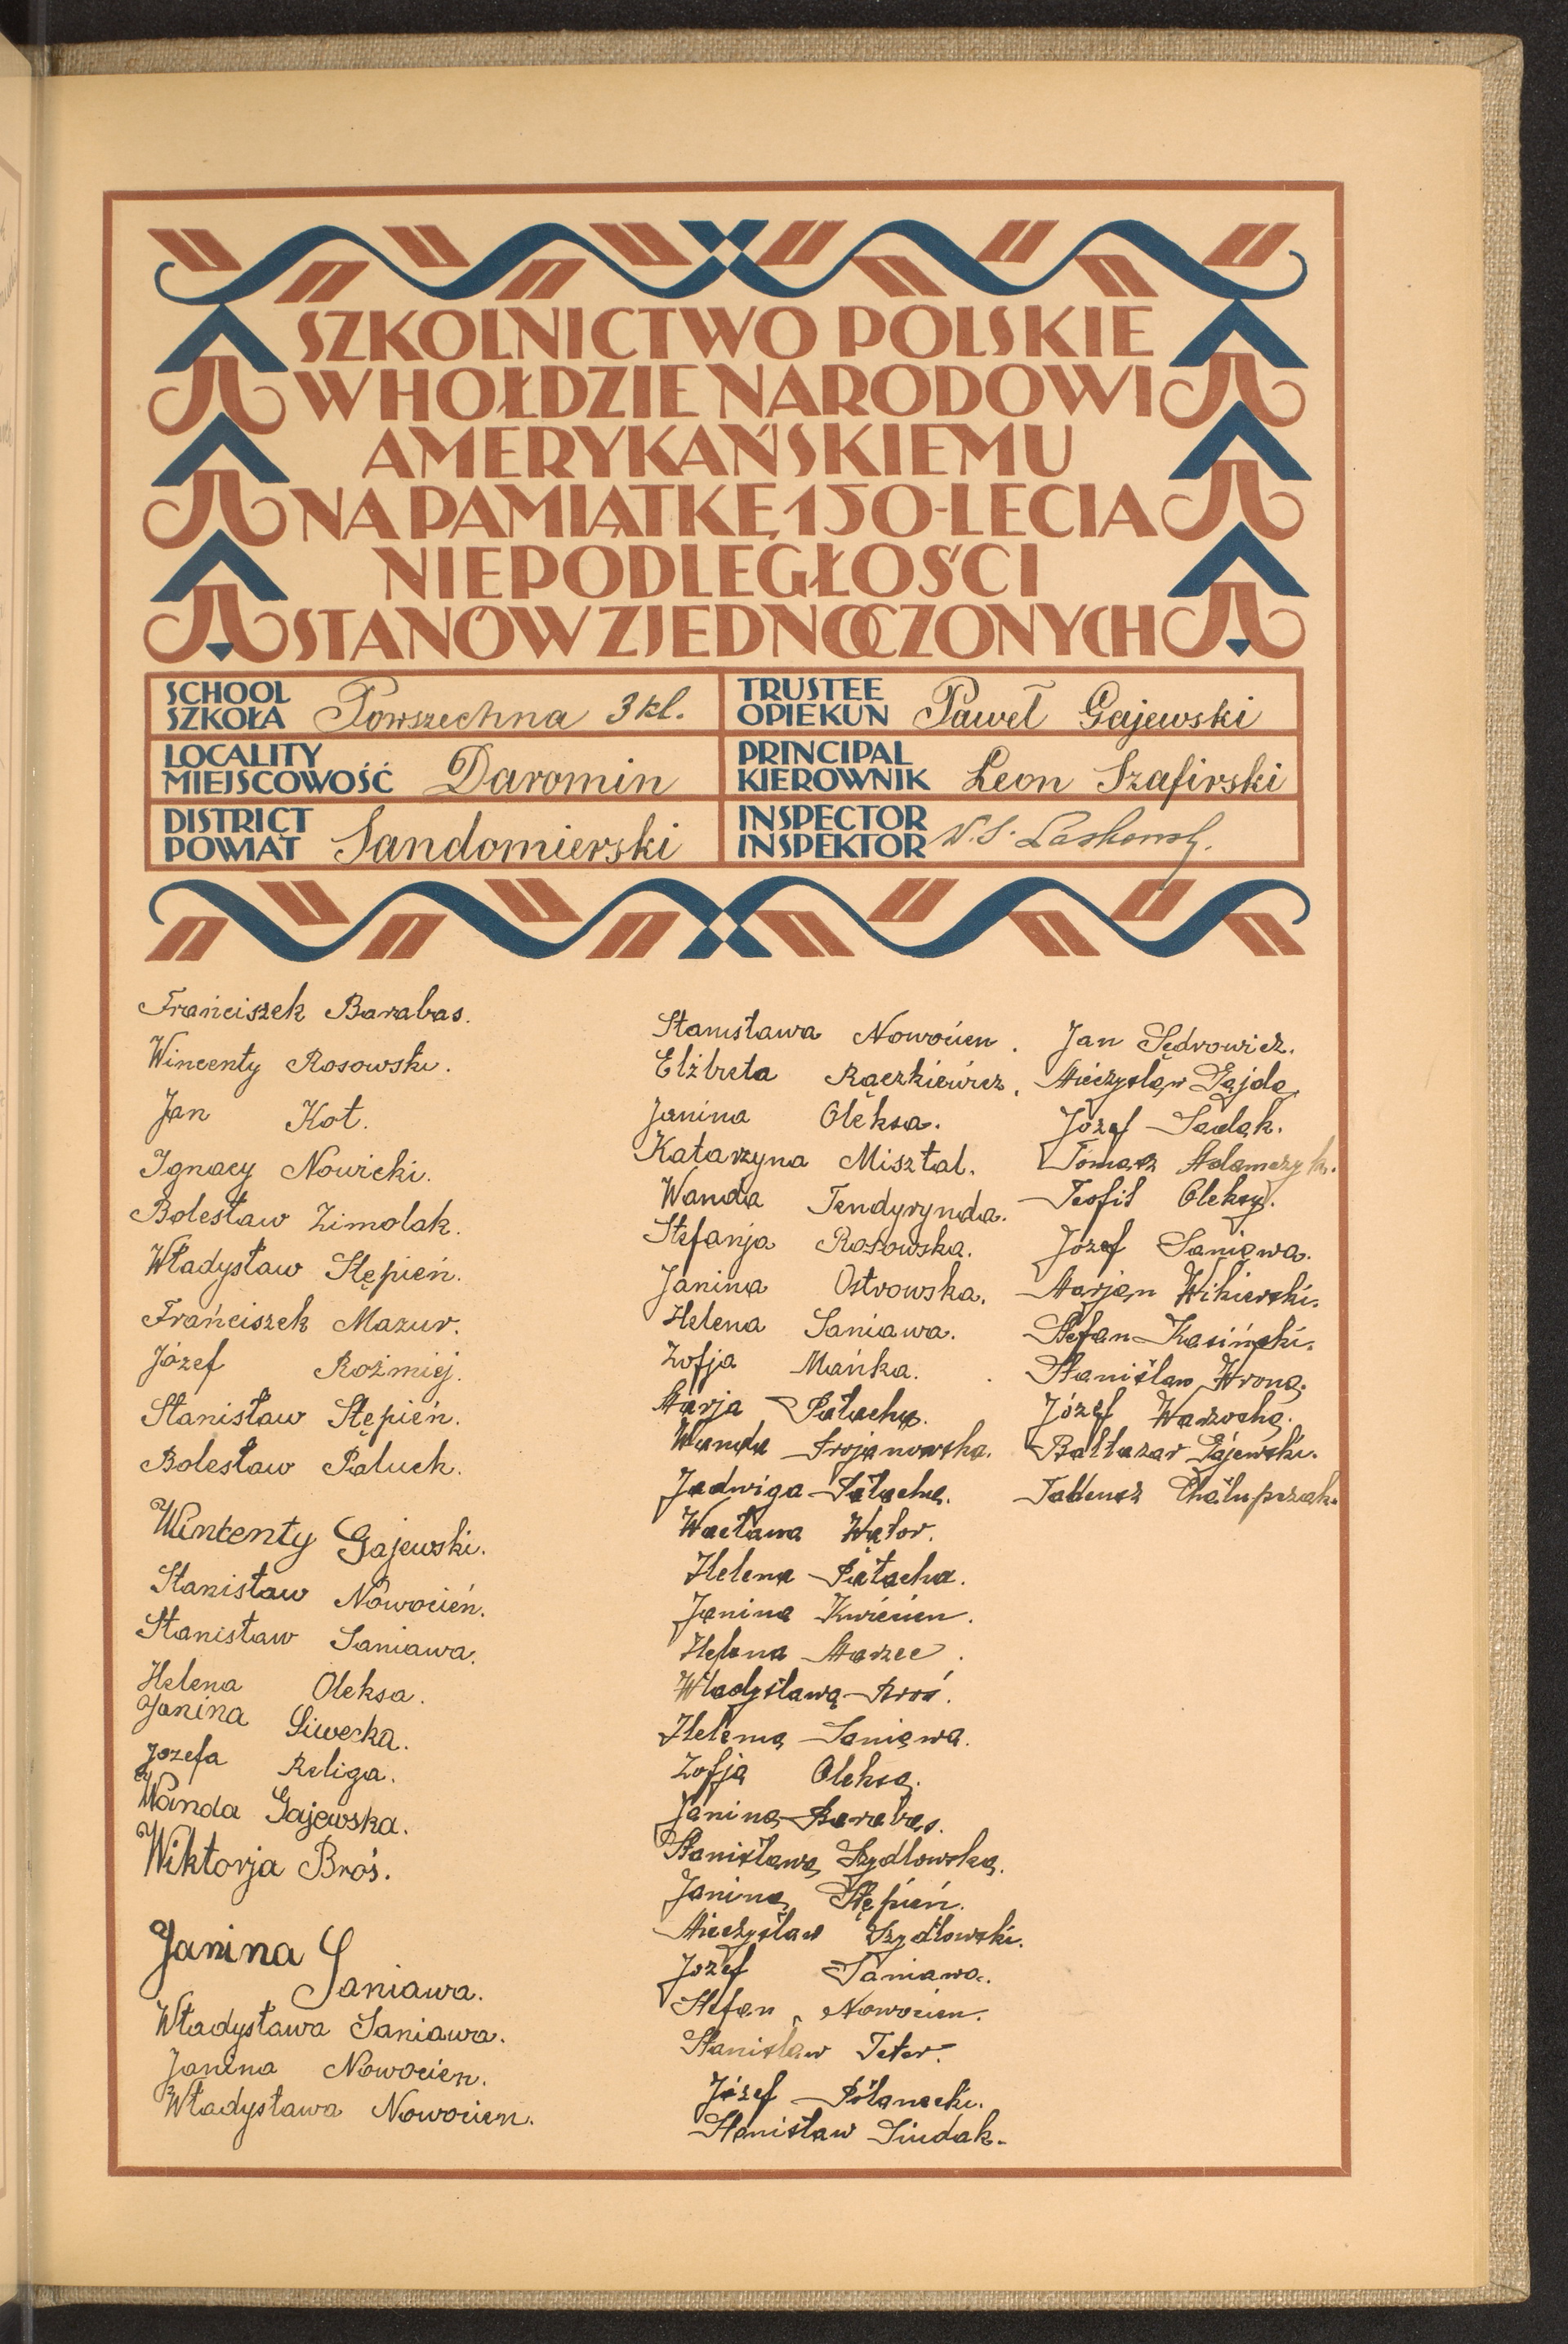 SZKOLNICTWO POLSKIE
W HOŁDZIE NARODOWI
AMERYKAŃSKIEMU
NA PAMIĄTKĘ 150-LECIA
NIEPODLEGŁOŚCI
STANÓW ZJEDNOCZONYCH
SCHOOL
SZKOŁA Powszechna 3 kl.
TRUSTEE
OPIEKUN Paweł Gajewski
LOCALITY
MIEJSCOWOŚĆ Daromin
PRINCIPAL
KIEROWNIK Leon Szafirski
DISTRICT
POWIAT Sandomierski
INSPECTOR
INSPEKTOR
Frańciszek Barabas.
Wincenty Rosowski.
Jan Kot.
Ignacy Nowicki.
Bolesław Zimolak.
Władysław Stępień.
Frańciszek Mazur.
Józef Rozmiej.
Stanisław Stępień.
Bolesław Paluch.
Wintenty Gajewski.
Stanisław Nowocień.
Stanisław Saniawa.
Helena Oleksa.
Janina Siwecka.
Jozefa Religa.
Wanda Gajewska.
Wiktorja Broś.
Janina Saniawa.
Władysława Saniawa.
Janina Nowocien.
Władysława Nowocien.
Stanisława Nowocien.
Elżbieta Rączkiewicz.
Janina Oleksa.
Katarzyna Misztal.
Wanda Tendyrynda.
Stefanja Rosowska.
Janina Ostrowska.
Helena Saniawa.
Zofja Mańka.
Marja Pałacha.
Wanda Trojanowska.
Jadwiga Pałacha.
Wacława Wątor.
Helena Pałacha.
Janina Kwiecien.
Helena Marzec.
Władysława Broś.
Helena Saniawa.
Zofja Oleksa.
Janina Barabas.
Stanisława Szydłowska.
Janina Stępień.
Mieczysław Szydłowski.
Jozef Saniawa.
Stefan Nowocien.
Stanisław Teter.
Józef Połanecki.
Stanisław Siudak.
Jan Sędrowicz.
Mieczysław Gajda.
Józef Sadak.
Tomasz Adamczyk.
Teofil Oleksy.
Józef Saniawa.
Marjan Wikierski.
Stefan Kasiński.
Stanisław Wrona.
Józef Warzocha.
Baltazar Gajewski.
Tadeusz Chałupczak.